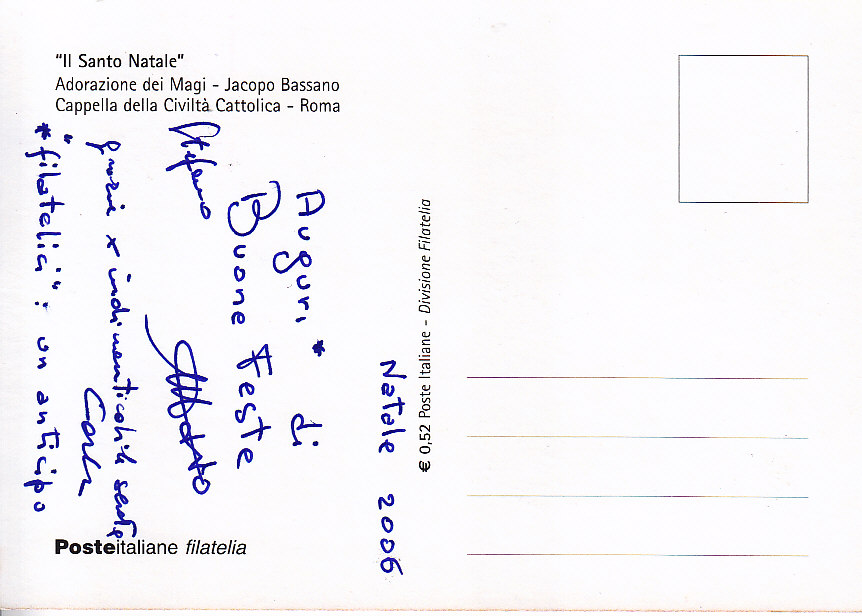 "Il Santo Natale"
Adorazione dei Magi - Jacopo Bassano
Cappella della Civiltà Cattolica - Roma
Natale 2006
Auguri * di
Buone Feste
Stefano
grazie x indimenticabile
Carla
* "filatelici": un anticipo
€ 0,52 Poste Italiane - Divisione Filatelia
Posteitaliane filatelia